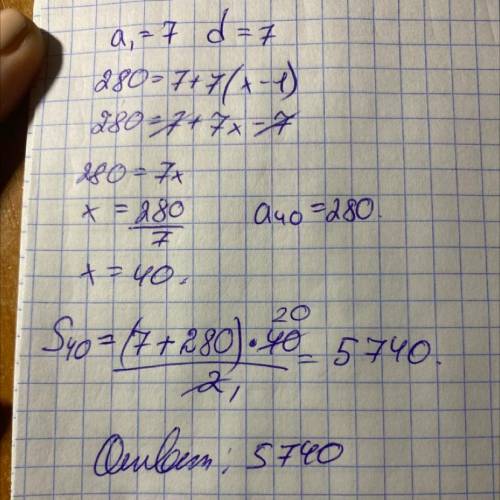 a₁ = 7 d = 7
280 = 7 + 7(x - 1)
280 = 7 + 7x - 7
280 = 7x
x = 280/7 a₄₀ = 280.
x = 40.
S₄₀ = (7 + 280) · 40/2 = 5740.
20
1
Ответ: 5740